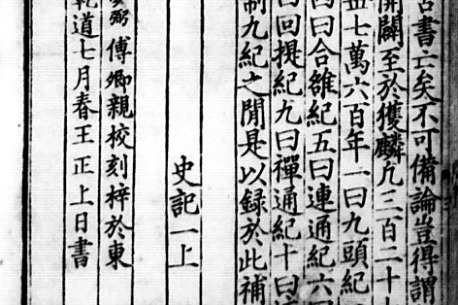 古書亡矣不可備論豈得謂
開闢至於獲麟凡三百二十
世七萬六百年一曰九頭紀
曰合雒紀五曰連通紀六
曰回提紀九曰禪通紀十曰
制九紀之閒是以録於此補
史記一上
弼傅卿親校刻梓於東
乾道七月春王正上日書